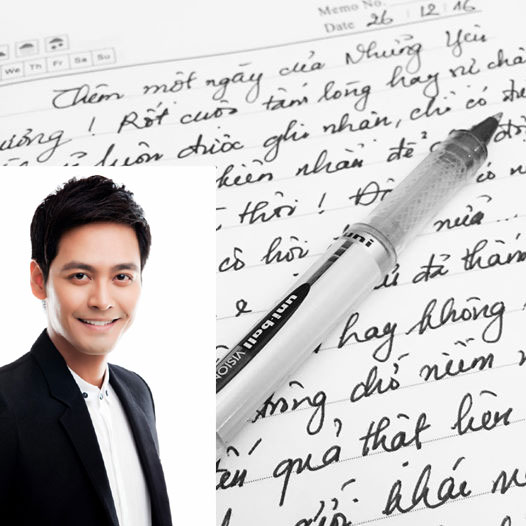 Memo No.
Date 26 / 12 / 16
We Th Fr Sa Su
Thêm một ngày của Những Yêu
ương ! Rốt cuộc tấm lòng hay sự châ
luôn được ghi nhận, chỉ có đ
kiên nhẫn để
thôi !
cô hồi nữa ...
e đã thàn
hay không
trong đó niềm
quả thật liên
khái n
uni
uni-ball VISION